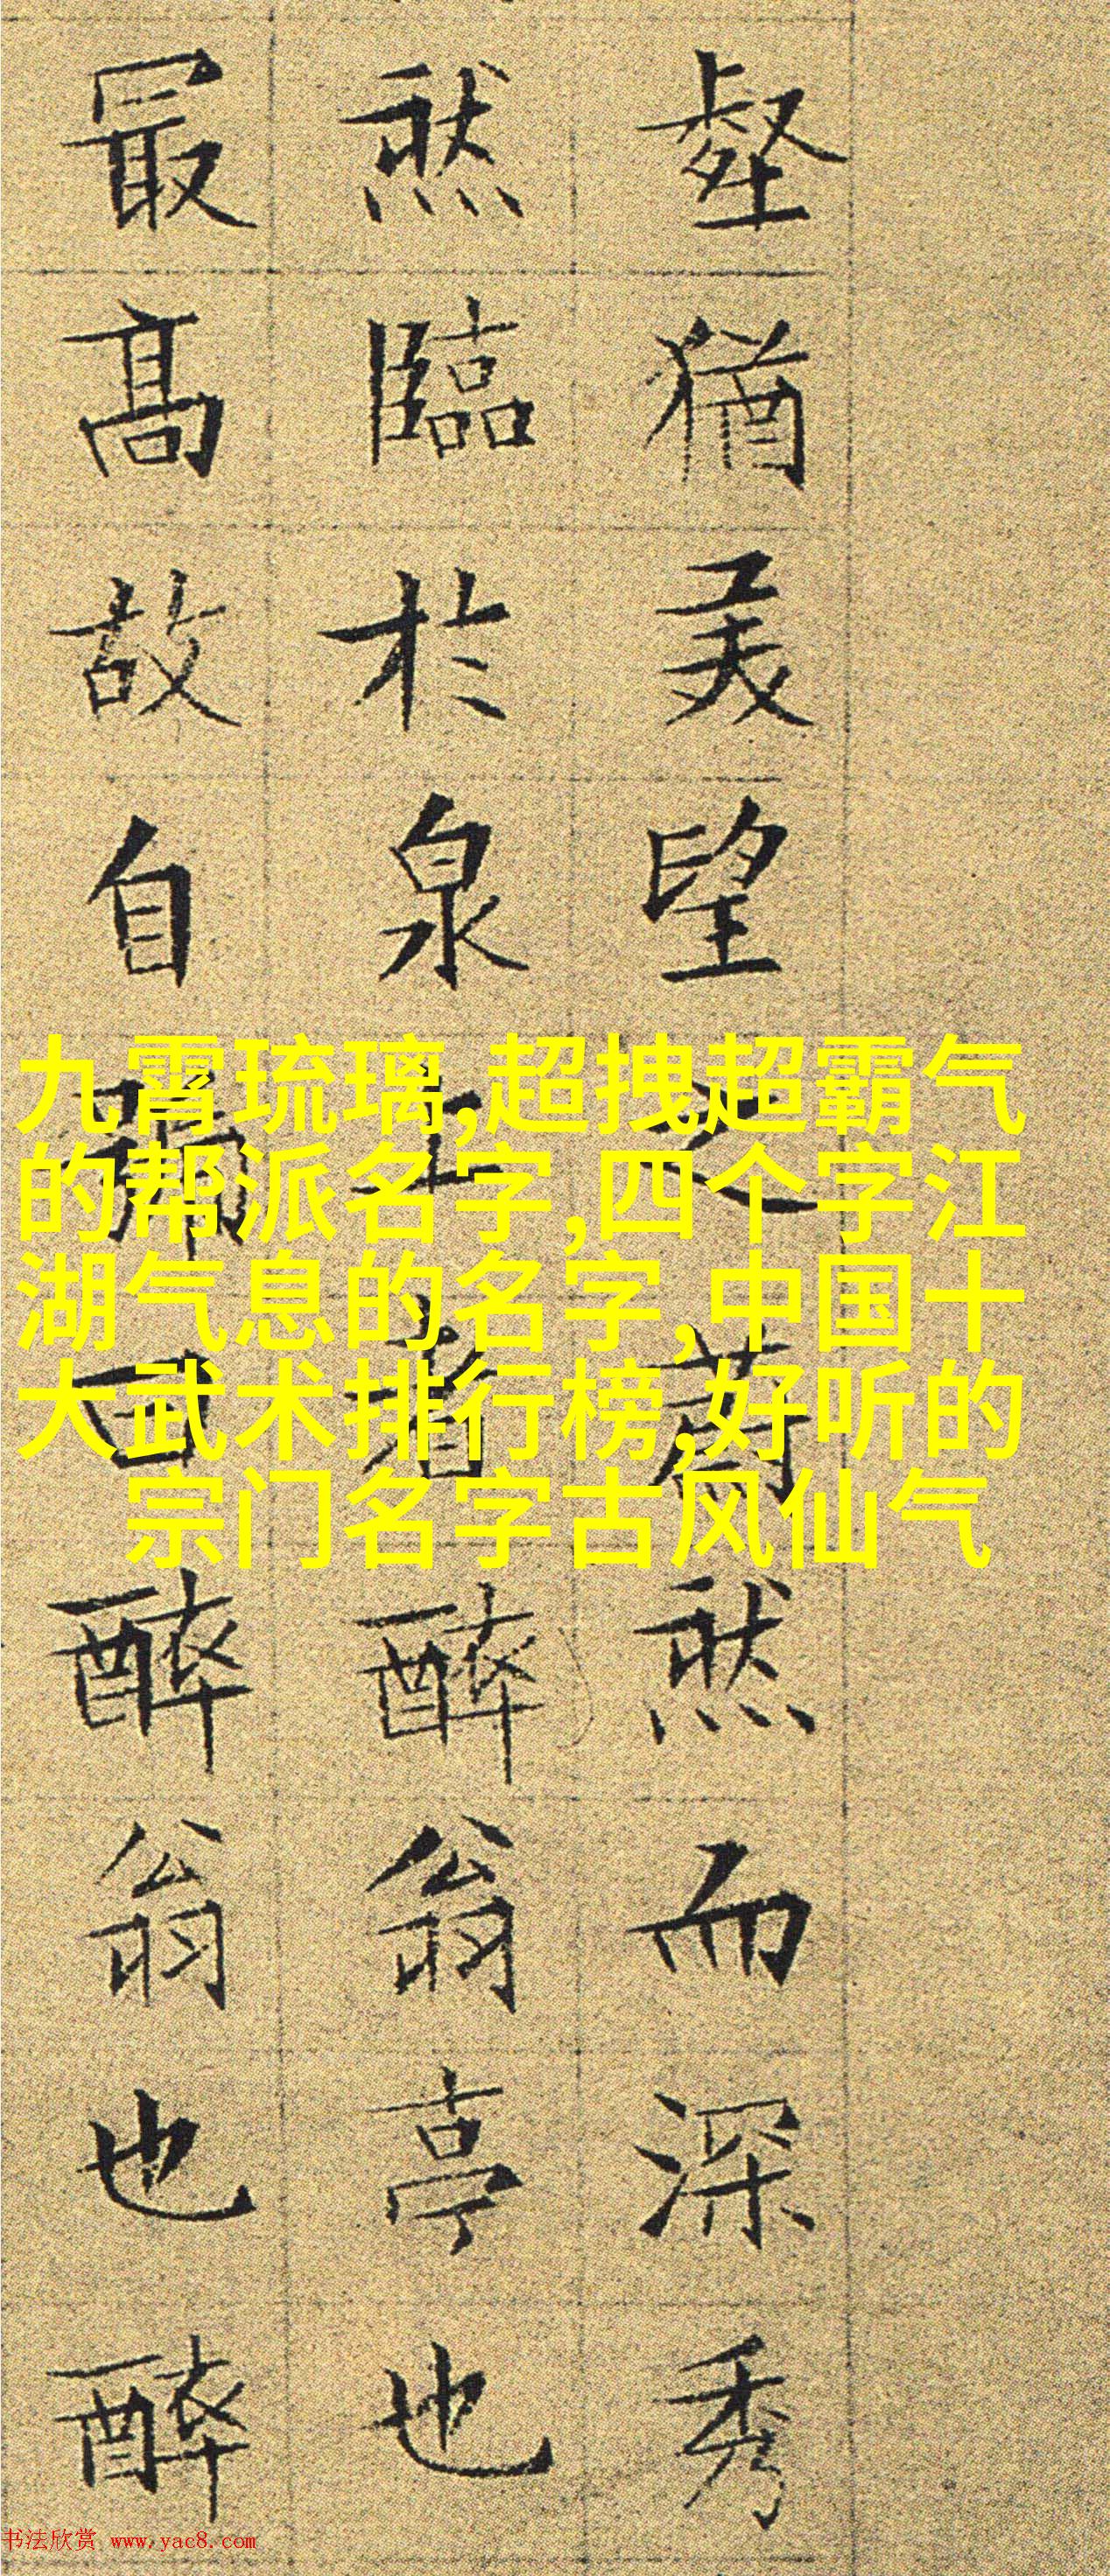 壑猶美望之蔚然而深秀
然臨於泉上者醉翁亭也
最高故自號曰醉翁也醉
九霄琉璃,超拽超霸气
的帮派名字,四个字江
湖气息的名字,中国十
大武术排行榜,好听的
宗门名字古风仙气
书法欣赏 www.yac8.com